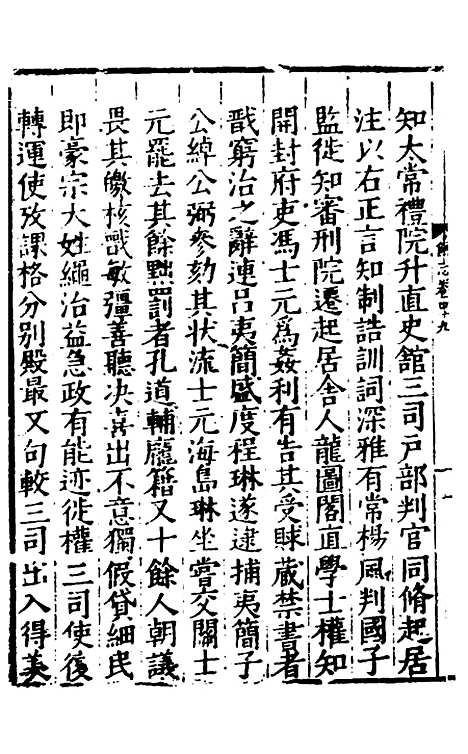 知太常禮院升直史館三司戶部判官同脩起居
注以右正言知制誥訓詞深雅有常楊風判國子
監徙知審刑院遷起居舍人龍圖閣直學士權知
開封府吏馮士元爲姦利有告其受賕藏禁書者
戩窮治之辭連呂夷簡盛度程琳遂逮捕夷簡子
公綽公弼參劾其狀流士元海島琳坐嘗交關士
元罷去其餘黜罰者孔道輔龐籍又十餘人朝議
畏其皦核戩敏彊善聽决喜出不意獨假貸細民
即豪宗大姓繩治益急政有能迹徙權三司使復
轉運使攷課格分别殿最又句較三司出入得羡
志卷四十九